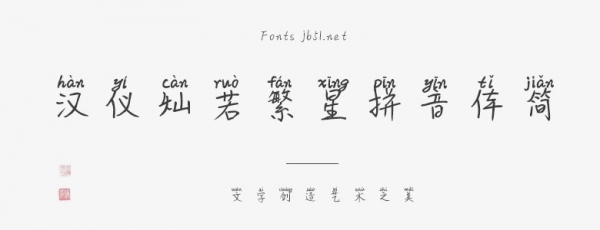 Fonts jb51.net
hàn yí càn ruò fán xīng pīn yīn tǐ jiǎn
汉仪灿若繁星拼音体简
文学创造艺术之美